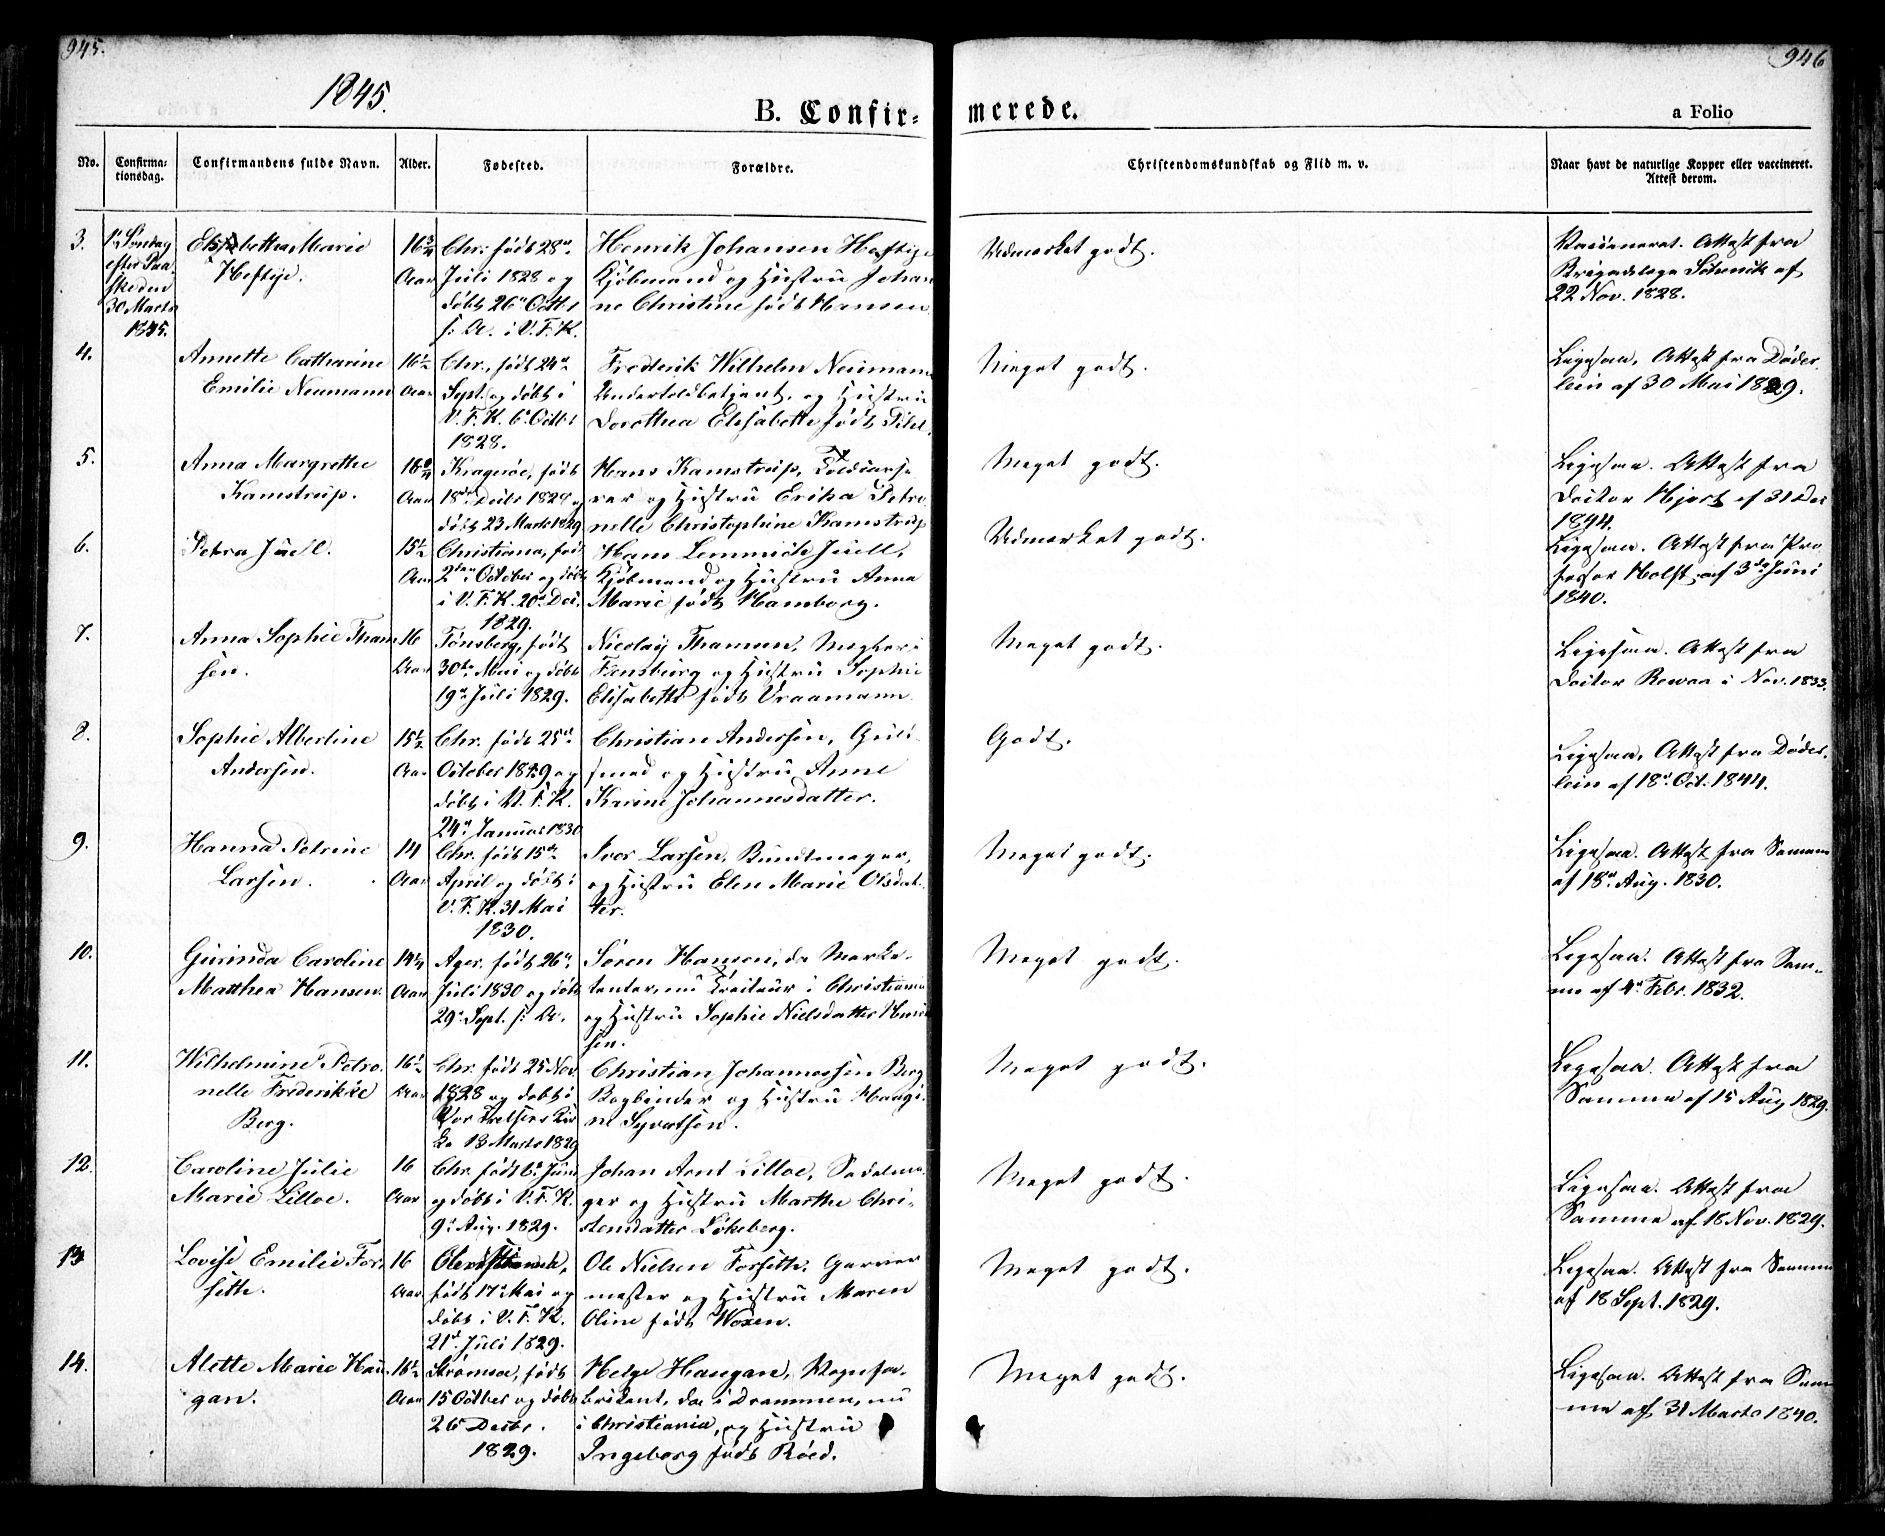 945.
946
1845.
B. Confir=
merede.
a Folio
No.
Confirma-
tionsdag.
Confirmandens fulde Navn.
Alder.
Fødested.
Forældre.
Christendomskundskab og Flid m. v.
Naar havt de naturlige Kopper eller vaccineret.
Attest derom.
3.
1. Søndag
efter Paa-
ske den
30 Marts
1845.
Elisabetha Marie
Heftije.
16¾
Aar
Chr: født 28de
Juli 1828 og
døbt 26de Octbr
s: A. i V. F. K.
Henrik Johansen Heftije
Kjøbmand og Hustru Johan
ne Christine født Hansen
Udmærket godt.
Vaccineret. Attest fra
Brigadelæge
22 Nov. 1828.
4.
Annette Catharine
Emilie Neumann
16½
Aar
Chr., født 24de
Sept. og døbt i
V. F. K. 6. Octbr
1828.
Frederik Wilhelm Neumann
Undertoldbetjent, og Hustru
Dorothea Elisabette født
Meget godt.
Ligesaa, Attest fra Døder
lein af 30 Mai 1829.
5.
Anna Margrethe
Kamstrup.
16
Aar
Kragerøe, født
18de Decbr 1828 og
døbt 23 Marts 1829
Hans Kamstrup,
rer og Hustru Erika Petro
nelle Christophine Kamstrup
Meget godt.
Ligesaa. Attest fra
Doctor Hjort af 31 Dec
1844.
6.
Petra Juell.
15½
Aar
Christiania, født
2den October og døbt
i V. F. K. 20de Dec.
1829.
Hans Lemmich Juell,
Kjøbmand og Hustru Anna
Marie født Hamborg.
Udmærket godt.
Ligesaa. Attest fra Pro
fessor Holst af 3de Juni
1840.
7.
Anna Sophie Tham
sen.
16
Aar
Tønsberg, født
30te Mai og døbt
19de Juli 1829.
Nicolay Thamsen, Mægler i
Tønsberg og Hustru Sophie
Elisabette født Vraamann
Meget godt.
Ligesaa. Attest fra
Doctor i Nov. 1833.
8.
Sophie Albertine
Andersen.
15½
Aar
Chr. født 25de
October 1829 og
døbt i V. F. K.
24de Januar 1830
Christian Andersen, Guld-
smed og Hustru Anne
Karine Johannesdatter.
Godt.
Ligesaa, Attest fra Døder-
lein af 18de Oct. 1844.
9.
Hanna Petrine
Larsen.
14
Aar
Chr. født 15de
April og døbt i
V. F. K. 31 Mai
1830.
Iver Larsen, Bundtmager,
og Hustru Elen Marie Olsdat-
ter.
Meget godt.
Ligesaa. Attest fra Samme
af 18de Aug. 1830.
10.
Gurinda Caroline
Matthea Hansen.
14½
Aar
Ager. født 26de
Juli 1830 og døbt
29de Sept. s: A.
Søren Hansen, da Marke-
tenter, nu Traiteur i Christiania
og Hustru Sophie Nielsdatter
sen.
Meget godt.
Ligesaa. Attest fra Sam-
me af 4de Febr. 1832.
11.
Wilhelmine Petro
nelle Frederikke
Berg.
16½
Aar
Chr. født 25 Nov
1828 og døbt i
Vor Frelsers Kir
ke 13 Marts 1829
Christian Johannessen Berg
Bogbinder og Hustru
ne Syvertsen.
Meget godt.
Ligesaa. Attest fra
Samme af 15 Aug 1829.
12.
Caroline Julie
Marie Lilloe.
16
Aar
Chr. født 6te Juni
og døbt i V. F. K.
9de Aug. 1829.
Johan Arnt Lilloe, Sadelma-
ger og Hustru Marthe Chri-
stensdatter Løkeberg.
Meget godt.
Ligesaa. Attest fra
Samme af 18 Nov. 1829.
13
Lovise Emilie For-
sette.
16
Aar
født 17de Mai og
døbt i V. F. K.
21de Juli 1829.
Ole Nielsen Forsette, Garver
mester og Hustru Maren
Oline født Woxen.
Meget godt.
Ligesaa. Attest fra Samme
af 18 Sept. 1829.
14.
Alette Marie Hau-
gan.
Aar
Strømsø, født
15 October og døbt
26 Decbr.
1829.
Helge Haugan, Vognfa-
brikant, da i Drammen, nu
i Christiania, og Hustru
Ingeborg født Röed.
Meget godt.
Ligesaa. Attest fra Sam
me af 31 Marts 1840.